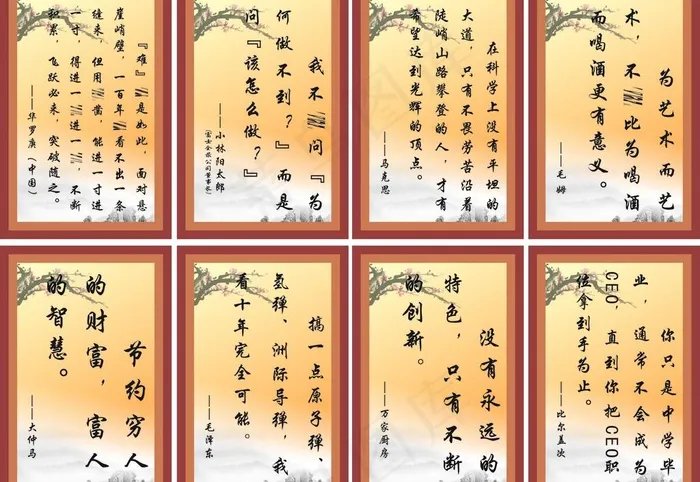 『难』是如此，面对悬
崖峭壁，一百年看不出一条
缝来，但用凿，能进一寸进
一寸，得进一进一，不断
积累，飞跃必来，突破随之。
——华罗庚（中国）
我不问『为
何做不到？』而是
问『该怎么做？』
——小林阳太郎
在科学上没有平坦的
大道，只有不畏劳苦沿着
陡峭山路攀登的人，才有
希望达到光辉的顶点。
——马克思
为艺术而艺
术，不比为喝酒
而喝酒更有意义。
——毛姆
节约穷人
的财富，富人
的智慧。
——大仲马
搞一点原子弹、
氢弹、洲际导弹，我
看十年完全可能。
——毛泽东
没有永远的
特色，只有不断
的创新。
——万家厨房
你只是中学毕
业，通常不会成为
CEO，直到你把CEO职
位拿到手为止。
——比尔盖茨